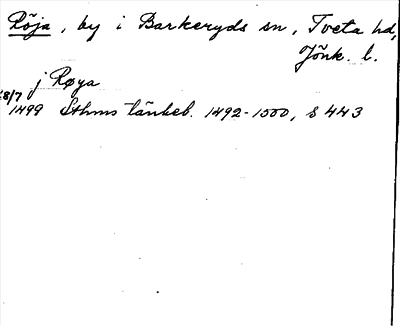 Röja, by i Barkeryds sn, Tveta hd,
Jönk. l.
j Røya
8/7
1499 Sthms tänkeb. 1492-1500, s 443